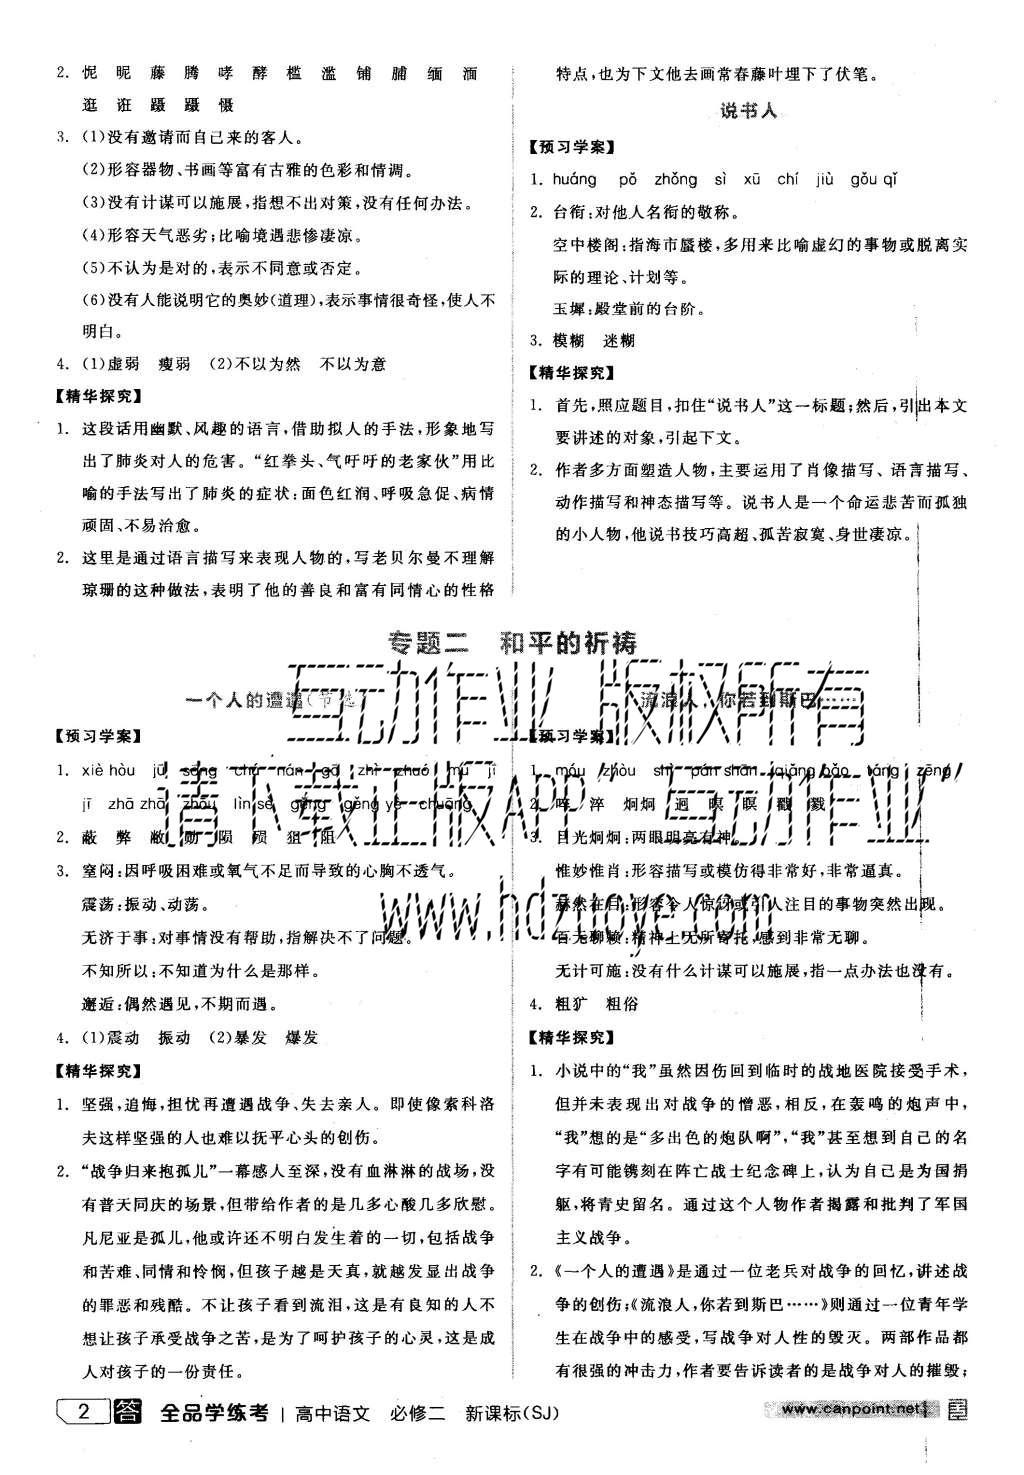 2. 怩 昵 藤 腾 哮 酵 槛 滥 铺 脯 缅 湎
逛 诳 蹑 蹑 慑
3. (1)没有邀请而自己来的客人。
(2)形容器物、书画等富有古雅的色彩和情调。
(3)没有计谋可以施展,指想不出对策,没有任何办法。
(4)形容天气恶劣;比喻境遇悲惨凄凉。
(5)不认为是对的,表示不同意或否定。
(6)没有人能说明它的奥妙(道理),表示事情很奇怪,使人不
明白。
4. (1)虚弱 瘦弱 (2)不以为然 不以为意
【精华探究】
1. 这段话用幽默、风趣的语言,借助拟人的手法,形象地写
出了肺炎对人的危害。“红拳头、气吁吁的老家伙”用比
喻的手法写出了肺炎的症状:面色红润、呼吸急促、病情
顽固、不易治愈。
2. 这里是通过语言描写来表现人物的,写老贝尔曼不理解
琼珊的这种做法,表明了他的善良和富有同情心的性格
特点,也为下文他去画常春藤叶埋下了伏笔。
说书人
【预习学案】
1. huáng pǒ zhǒng sì xū chí jiù gǒu qǐ
2. 台衔:对他人名衔的敬称。
空中楼阁:指海市蜃楼,多用来比喻虚幻的事物或脱离实
际的理论、计划等。
玉墀:殿堂前的台阶。
3. 模糊 迷糊
【精华探究】
1. 首先,照应题目,扣住“说书人”这一标题;然后,引出本文
要讲述的对象,引起下文。
2. 作者多方面塑造人物,主要运用了肖像描写、语言描写、
动作描写和神态描写等。说书人是一个命运悲苦而孤独
的小人物,他说书技巧高超、孤苦寂寞、身世凄凉。
专题二 和平的祈祷
一个人的遭遇(节选)
【预习学案】
1. xiè hòu
jī zhā zhā zhòu lìn sè gěng gěng yè chuāng
2. 蔽 弊 敝 勋 陨 殒 狙 阻
3. 窒闷:因呼吸困难或氧气不足而导致的心胸不透气。
震荡:振动、动荡。
无济于事:对事情没有帮助,指解决不了问题。
不知所以:不知道为什么是那样。
邂逅:偶然遇见,不期而遇。
4. (1)震动 振动 (2)暴发 爆发
【精华探究】
1. 坚强,追悔,担忧再遭遇战争、失去亲人。即使像索科洛
夫这样坚强的人也难以抚平心头的创伤。
2. “战争归来抱孤儿”一幕感人至深,没有血淋淋的战场,没
有普天同庆的场景,但带给作者的是几多心酸几多欣慰。
凡尼亚是孤儿,他或许还不明白发生着的一切,包括战争
和苦难、同情和怜悯,但孩子越是天真,就越发显出战争
的罪恶和残酷。不让孩子看到流泪,这是有良知的人不
想让孩子承受战争之苦,是为了呵护孩子的心灵,这是成
人对孩子的一份责任。
流浪人,你若到斯巴……
【预习学案】
1. móu zhòu shì pán shān qiāng bǎo táng zēng
2. 啐 淬 炯炯 迥 暝 瞑 戳 戮
3. 目光炯炯:两眼明亮有神。
惟妙惟肖:形容描写或模仿得非常好,非常逼真。
赫然在目:形容令人惊讶或引人注目的事物突然出现。
百无聊赖:精神上无所寄托,感到非常无聊。
无计可施:没有什么计谋可以施展,指一点办法也没有。
4. 粗犷 粗俗
【精华探究】
1. 小说中的“我”虽然因伤回到临时的战地医院接受手术,
但并未表现出对战争的憎恶,相反,在轰鸣的炮声中,
“我”想的是“多出色的炮队啊”,“我”甚至想到自己的名
字有可能镌刻在阵亡战士纪念碑上,认为自己是为国捐
躯,将青史留名。通过这个人物作者揭露和批判了军国
主义战争。
2. 《一个人的遭遇》是通过一位老兵对战争的回忆,讲述战
争的创伤;《流浪人,你若到斯巴……》则通过一位青年学
生在战争中的感受,写战争对人性的毁灭。两部作品都
有很强的冲击力,作者要告诉读者的是战争对人的摧毁;
互动作业 版权所有
请下载正版APP“互动作业”
www.hdzuoye.com
2 答 全品学练考 | 高中语文 必修二 新课标(SJ)
www.canpoint.net